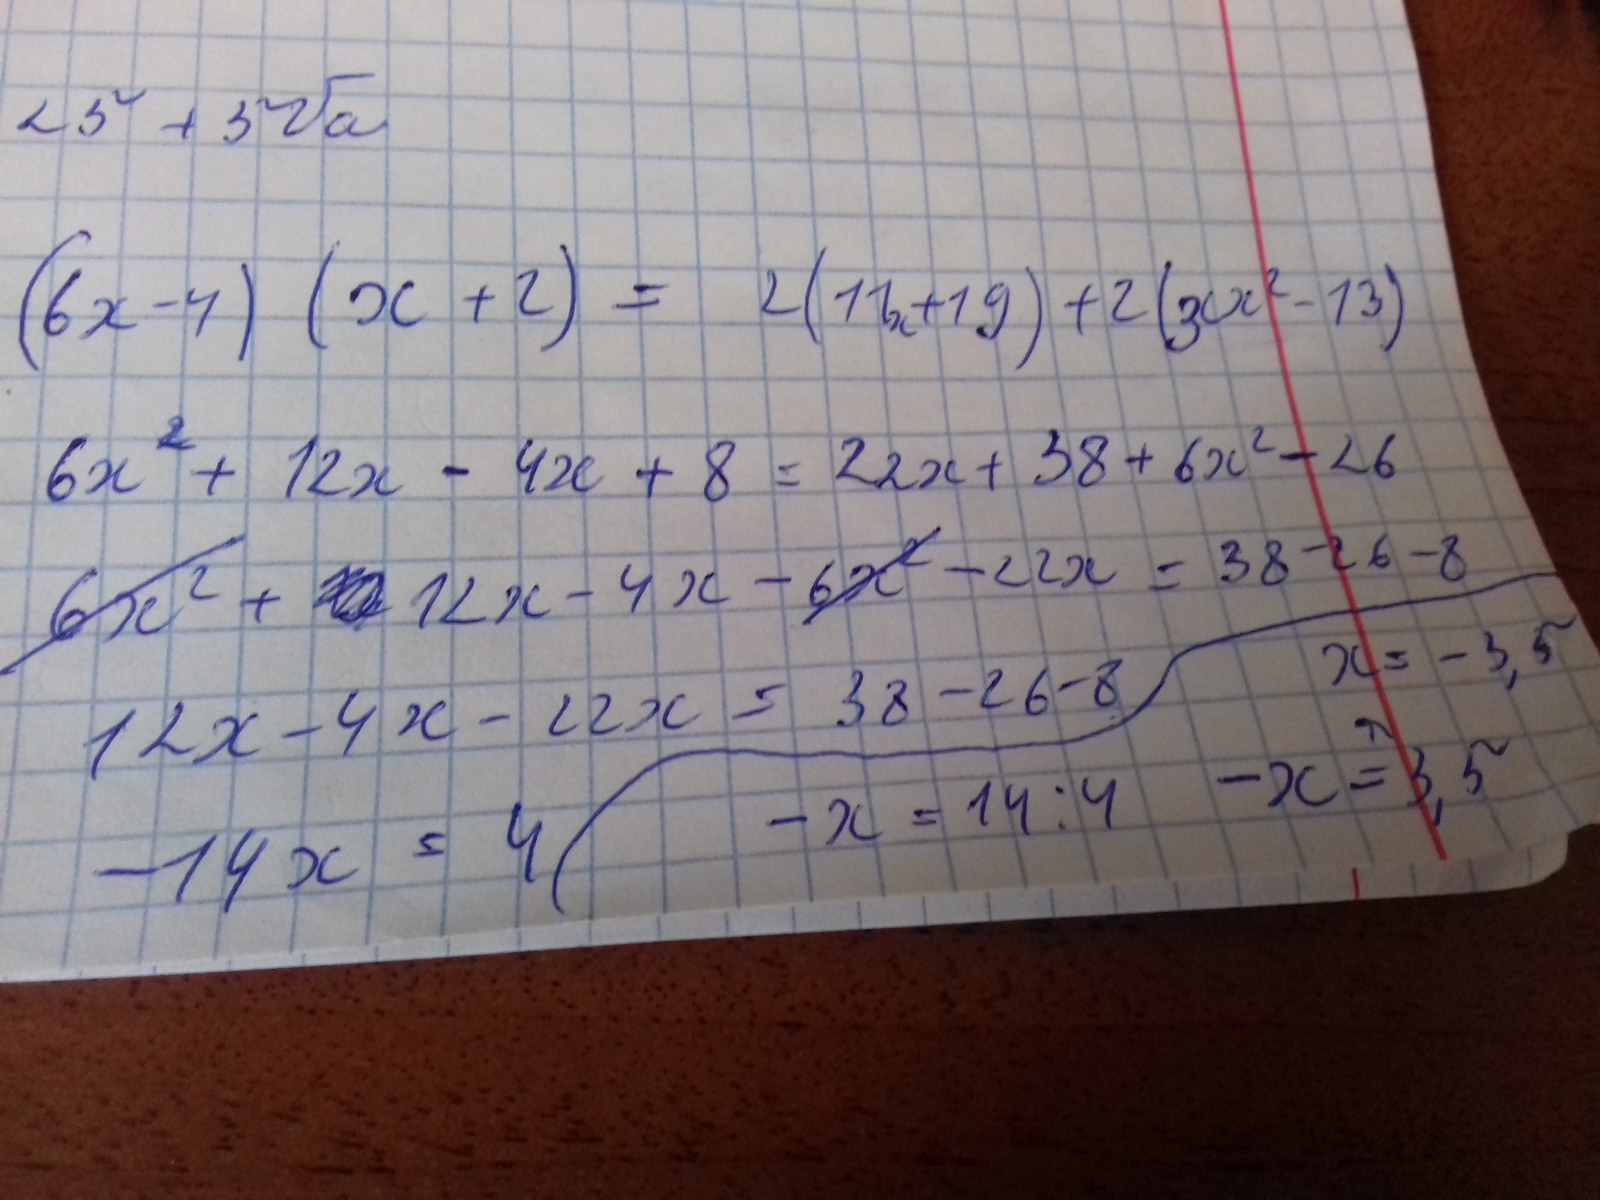 23² + 3²√a
(6x-4) (x+2) = 2(11x+19)+2(3x²-13)
6x² + 12x - 4x + 8 = 22x + 38 + 6x² - 26
6x² + 12x - 4x - 6x² - 22x = 38 - 26 - 8
12x - 4x - 22x = 38 - 26 - 8
x = -3,5
-14x = 4
-x = 14:4
-x = 3,5